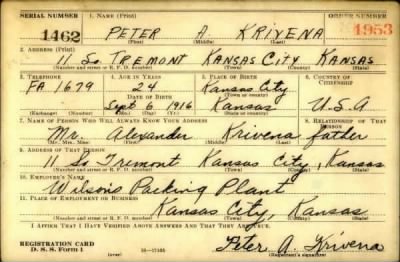 SERIAL NUMBER 1. NAME (Print) ORDER NUMBER
1462 PETER A KRIVENA 1953
(First) (Middle) (Last)
2. ADDRESS (Print)
11 So TREMONT KANSAS CITY KANSAS
(Number and street or R. F. D. number) (Town) (County) (State)
3. TELEPHONE 4. AGE IN YEARS 5. PLACE OF BIRTH 6. COUNTRY OF CITIZENSHIP
FA 1679 24 Kansas City
DATE OF BIRTH
Sept 6, 1916 Kansas U.S.A
(Exchange) (No.) (Mo.) (Day) (Yr.) (State or country)
7. NAME OF PERSON WHO WILL ALWAYS KNOW YOUR ADDRESS 8. RELATIONSHIP OF THAT PERSON
Mr. Alexander Krivena father
(Mr., Mrs., Miss) (First) (Middle) (Last)
9. ADDRESS OF THAT PERSON
11 So Tremont Kansas City, Kansas
(Number and street or R. F. D. number) (Town) (County) (State)
10. EMPLOYER'S NAME
Wilson's Packing Plant
11. PLACE OF EMPLOYMENT OR BUSINESS
Kansas City, Kansas
(Number and street or R. F. D. number) (Town) (County) (State)
I AFFIRM THAT I HAVE VERIFIED ABOVE ANSWERS AND THAT THEY ARE TRUE.
REGISTRATION CARD
D. S. S. Form 1 (over) Peter A. Krivena
(Registrant's signature)